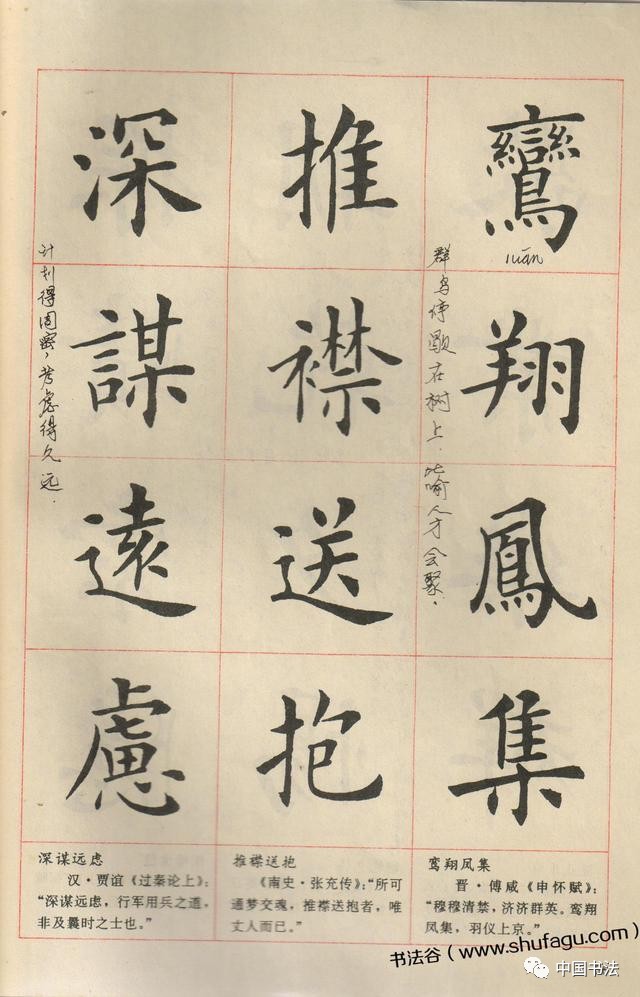 鸞翔鳳集
luán
群鸟停歇在树上.比喻人才会聚.
推襟送抱
深謀遠慮
计划得周密,考虑得久远.
鸾翔凤集
晋·傅咸《申怀赋》:
“穆穆清禁,济济群英。鸾翔
凤集,羽仪上京。”
推襟送抱
《南史·张充传》:“所可
通梦交魂,推襟送抱者,唯
丈人而已。”
深谋远虑
汉·贾谊《过秦论上》:
“深谋远虑,行军用兵之道,
非及曩时之士也。”
书法谷(www.shufagu.com)
中国书法